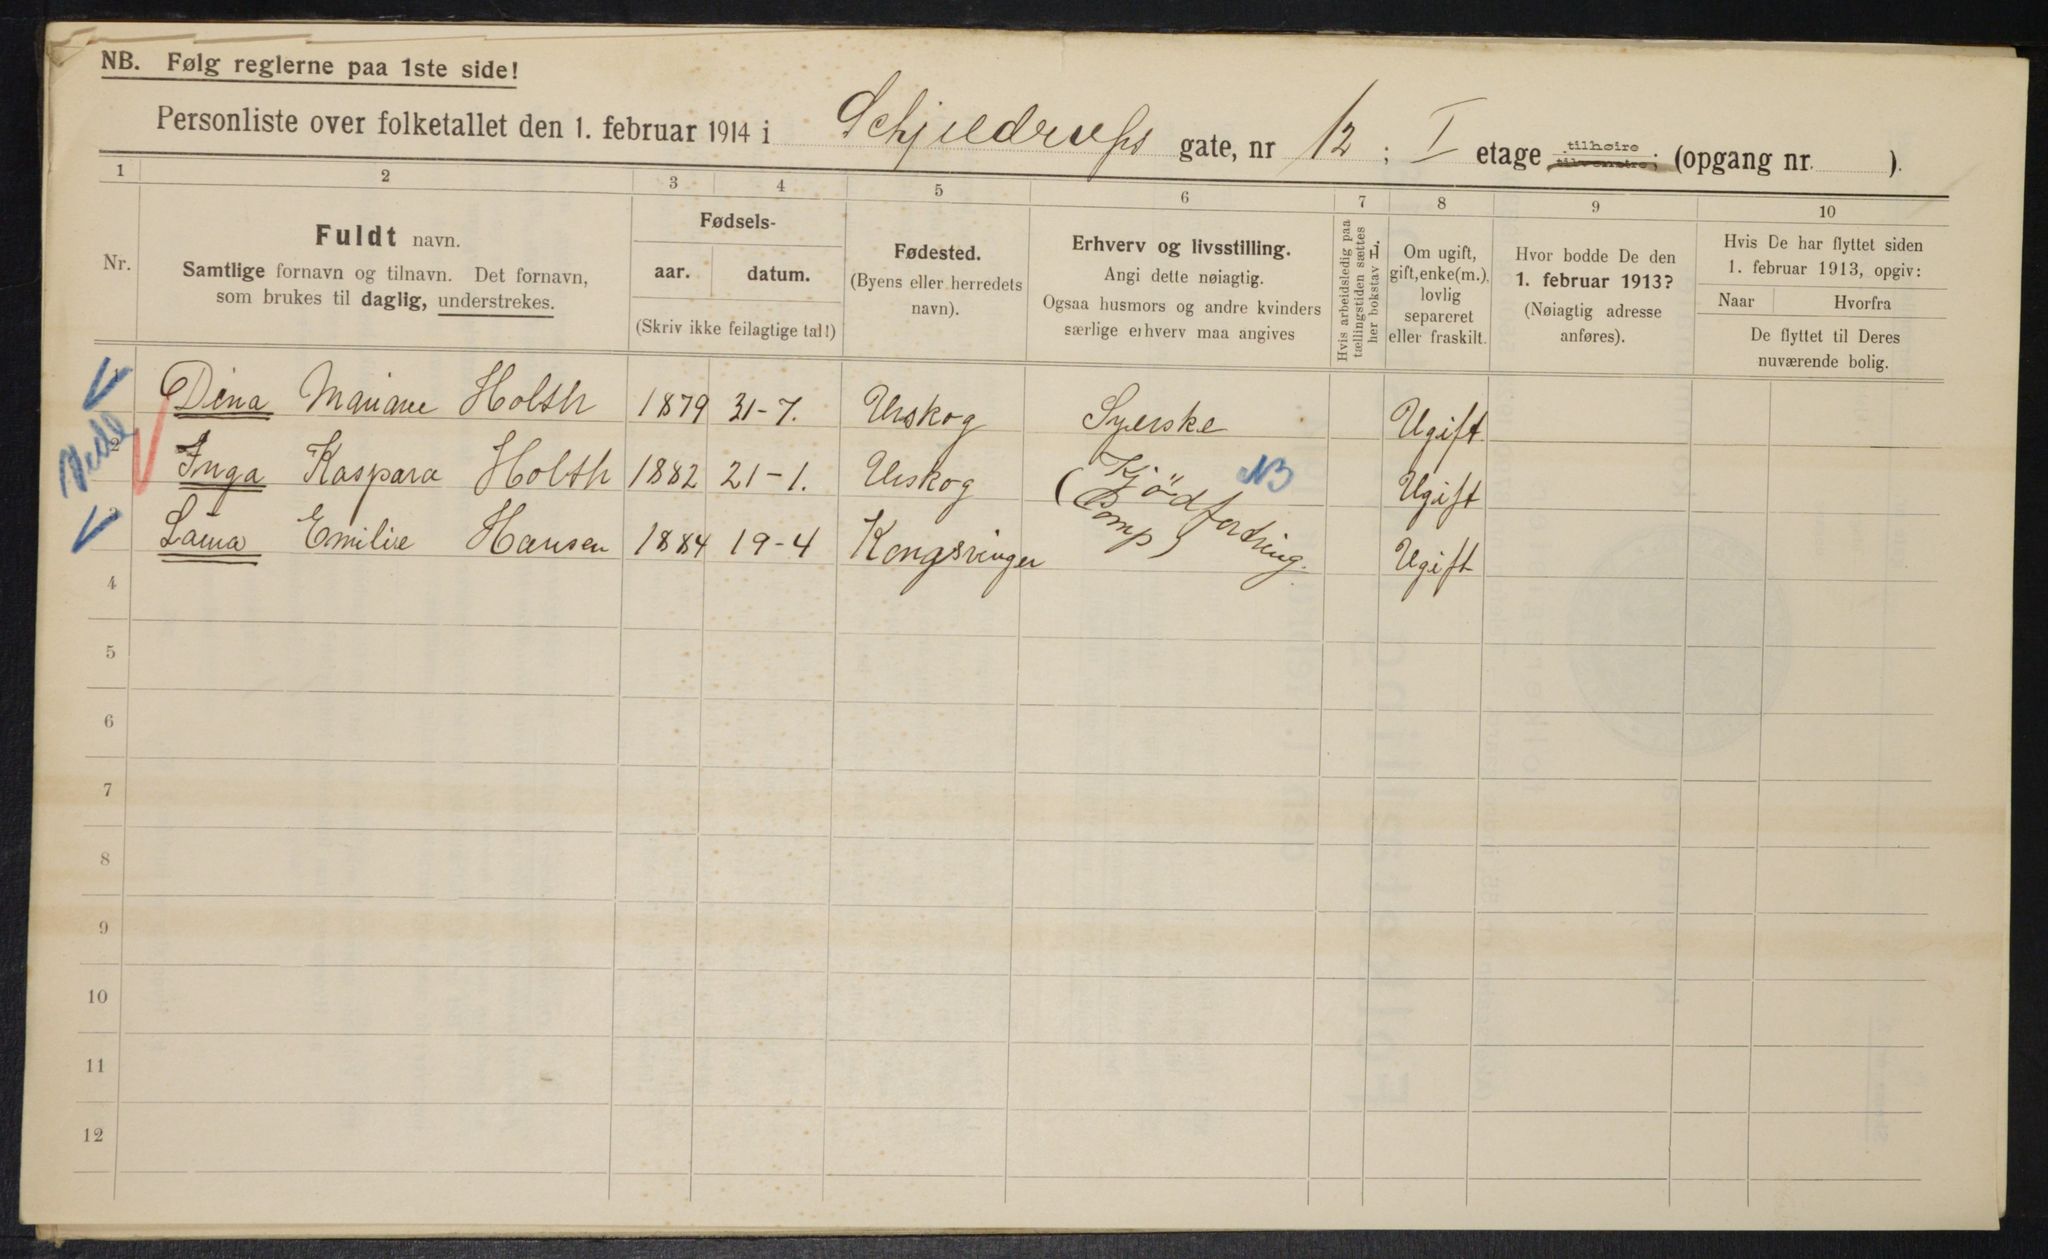 NB. Følg reglerne paa 1ste side!
Personliste over folketallet den 1. februar 1914 i Schjeldrups gate, nr 12 ; I etage tilhøire tilvenstre; (opgang nr. ).
1 2 3 4 5 6 7 8 9 10
Nr.
Fuldt navn.
Samtlige fornavn og tilnavn. Det fornavn,
som brukes til daglig, understrekes.
Fødsels-
aar. datum.
(Skriv ikke feilagtige tal!)
Fødested.
(Byens eller herredets
navn).
Erhverv og livsstilling.
Angi dette nøiagtig.
Ogsaa husmors og andre kvinders
særlige erhverv maa angives
Hvis arbeidsledig paa
tællingstiden sættes
her bokstav L
Om ugift,
gift, enke(m.),
lovlig
separeret
eller fraskilt.
Hvor bodde De den
1. februar 1913?
(Nøiagtig adresse
anføres).
Hvis De har flyttet siden
1. februar 1913, opgiv:
Naar Hvorfra
De flyttet til Deres
nuværende bolig.
Dina Mariane Holth 1879 31-7. Urskog Syerske Ugift
2 Inga Kaspara Holth 1882 21-1. Urskog Ugift
NB
3 Laura Emilie Hansen 1884 19-4 Kongsvinger Ugift
4
5
6
7
8
9
10
11
12